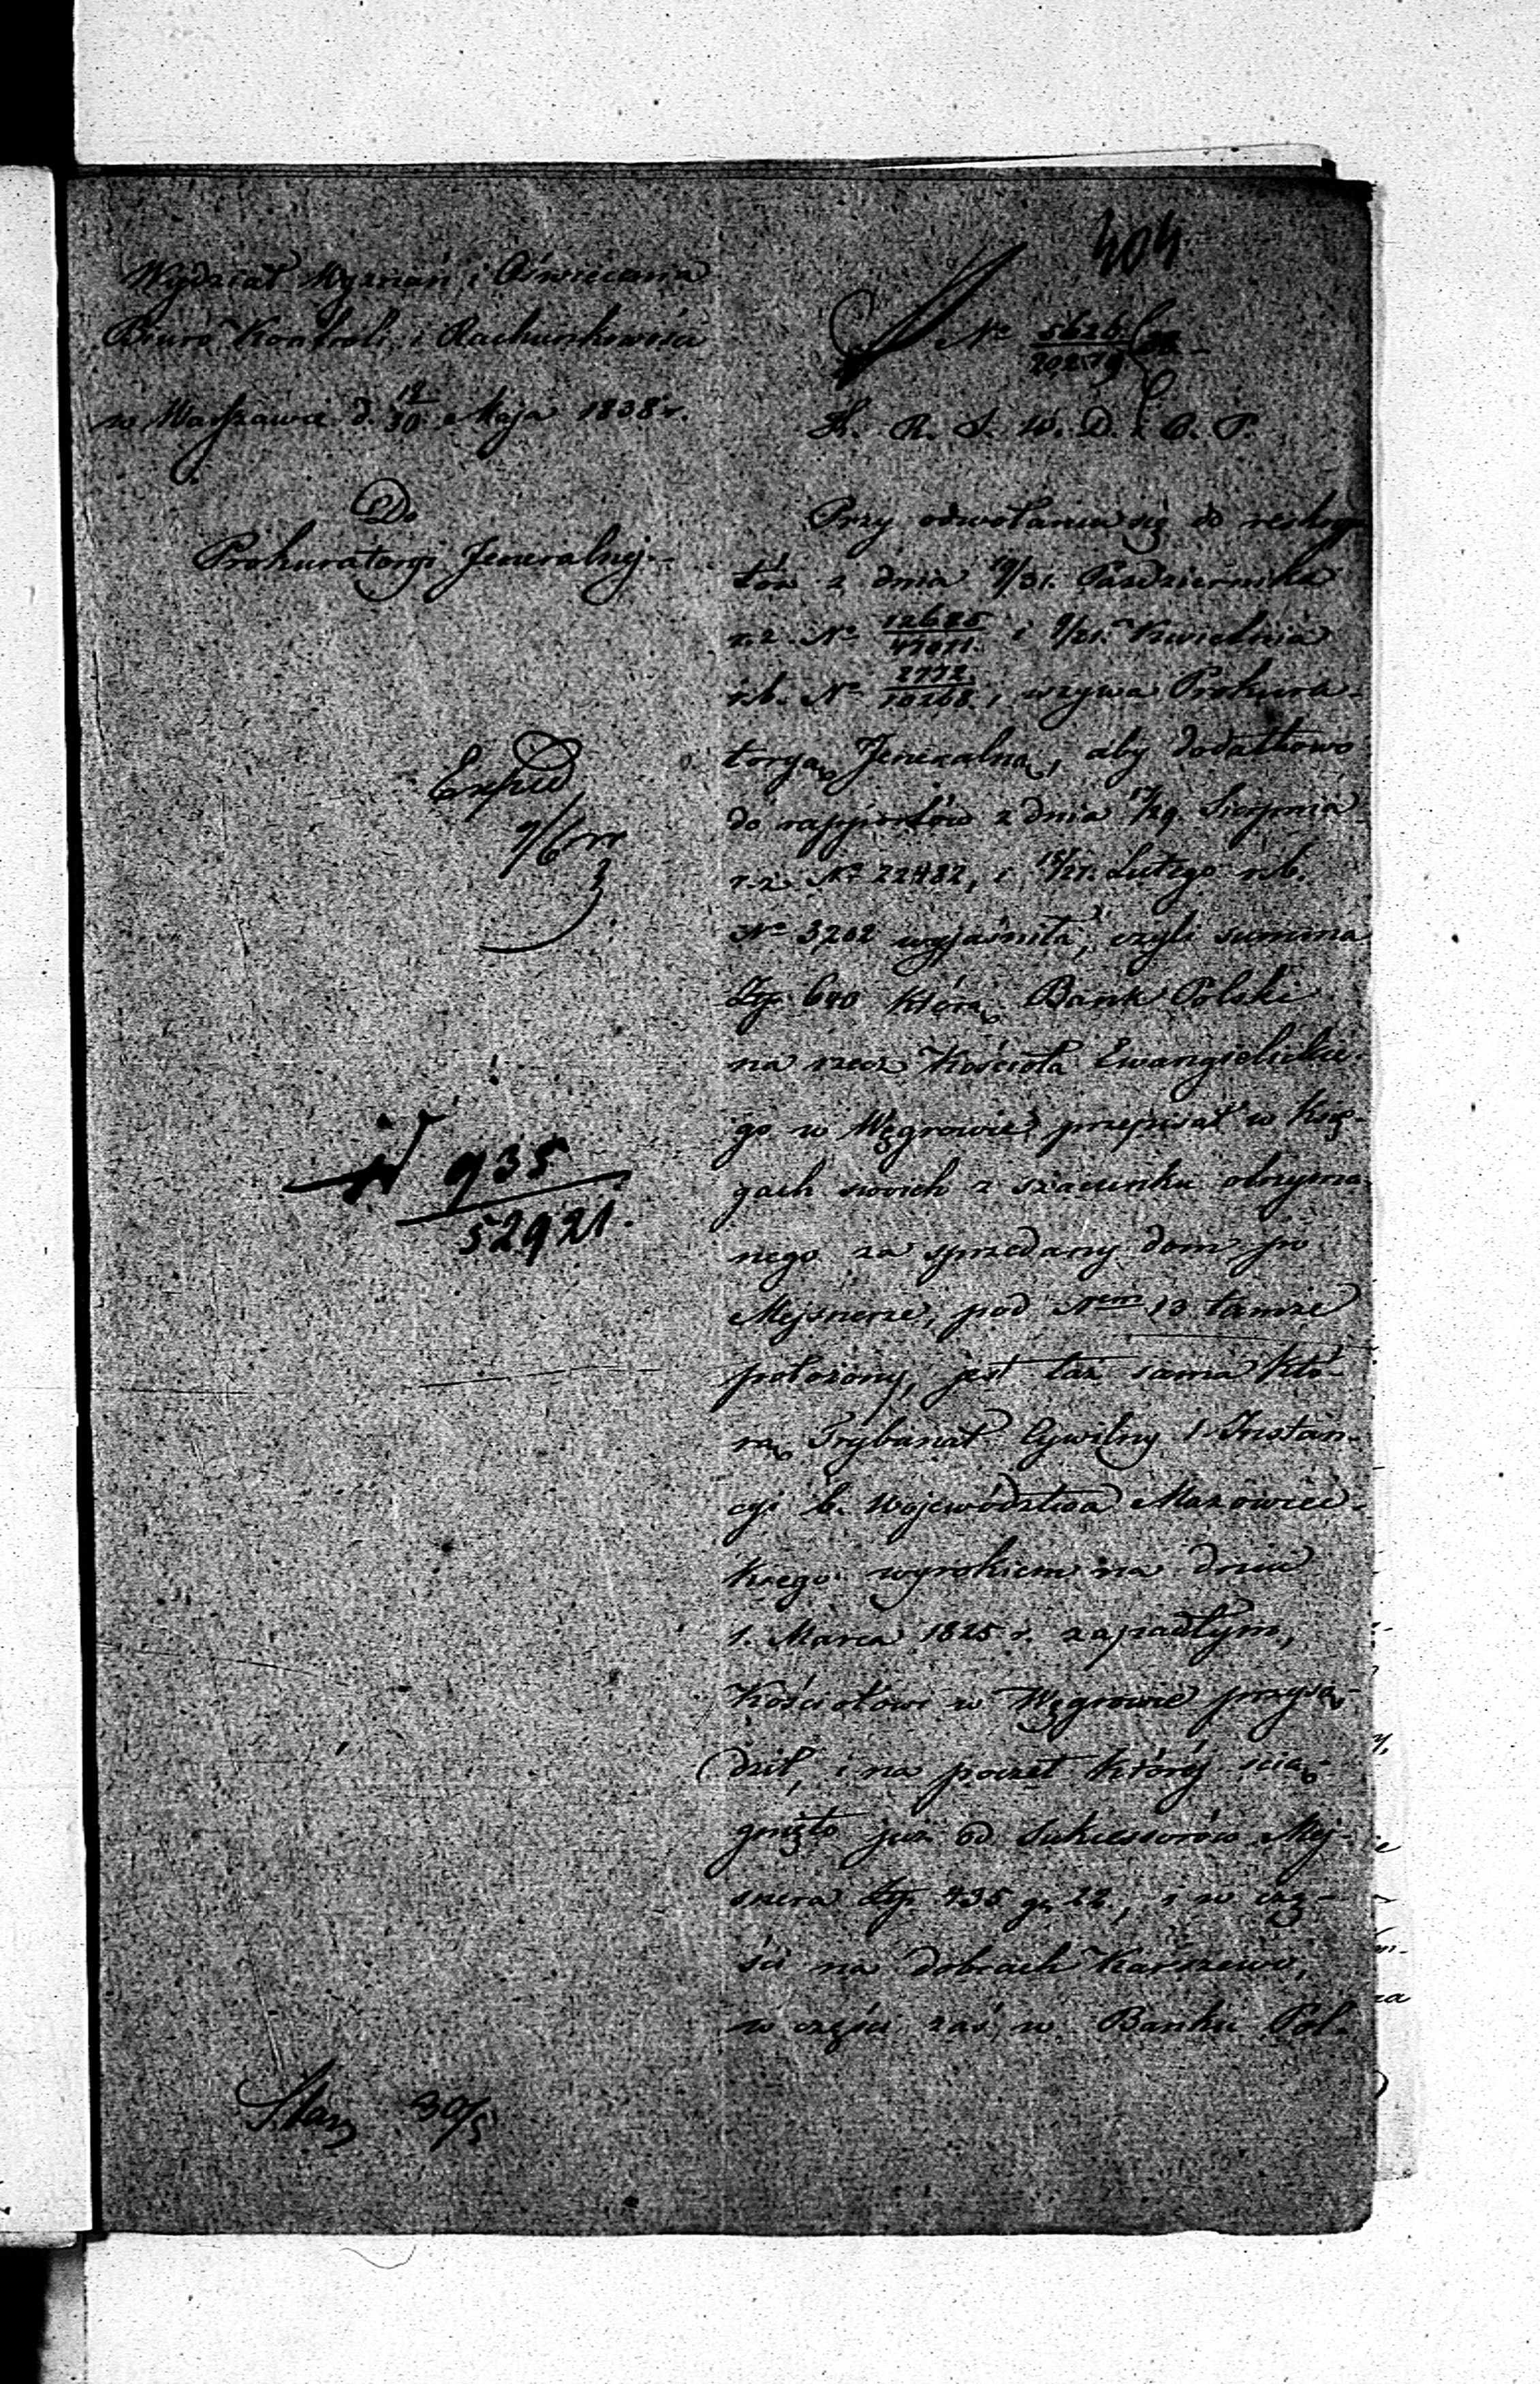 404.
Wydział Wyznań i Oświecenia
Biuro Kontroli i Rachunkowości
w Warszawie d. 18/30 Maja 1838 r.
Do
Prokuratoryi Jeneralnej
Exped
9/6
N 935/52921.
Stan 30/5
No 5626/20279
K. R. S. W. D. i O. P.
Przy odwołaniu się do reskryp
tów z dnia 19/31. Października
r. z. No 12685/47071. i 9/21. Kwietnia
r. b. No 2772/10268., wzywa Prokura-
toryą Jeneralną, aby dodatkowo
do rapportów z dnia 17/29. Sierpnia
r. z. No 22482, i 15/27. Lutego r. b.
No 3202 wyjaśniła, czyli summa
Złp. 640 którą Bank Polski
na rzecz Kościoła Ewangielickie-
go w Węgrowie przepisał w Księ-
gach swoich z szacunku otrzyma-
nego za sprzedany dom po
Mejsnerze, pod Nem 13 tamże
położony, jest taż sama któ-
rą Trybunał Cywilny 1 Instan-
cyi b. Województwa Mazowiec-
kiego wyrokiem na dniu
1. Marca 1825 r. zapadłym,
Kościołowi w Węgrowie przysą-
dził, i na poczet której ścią-
gnięto już od Sukcessorów Mej-
snera Złp. 435 gr. 22., i w czę-
ści na dobrach Karszewo,
w części zaś w Banku Pol-